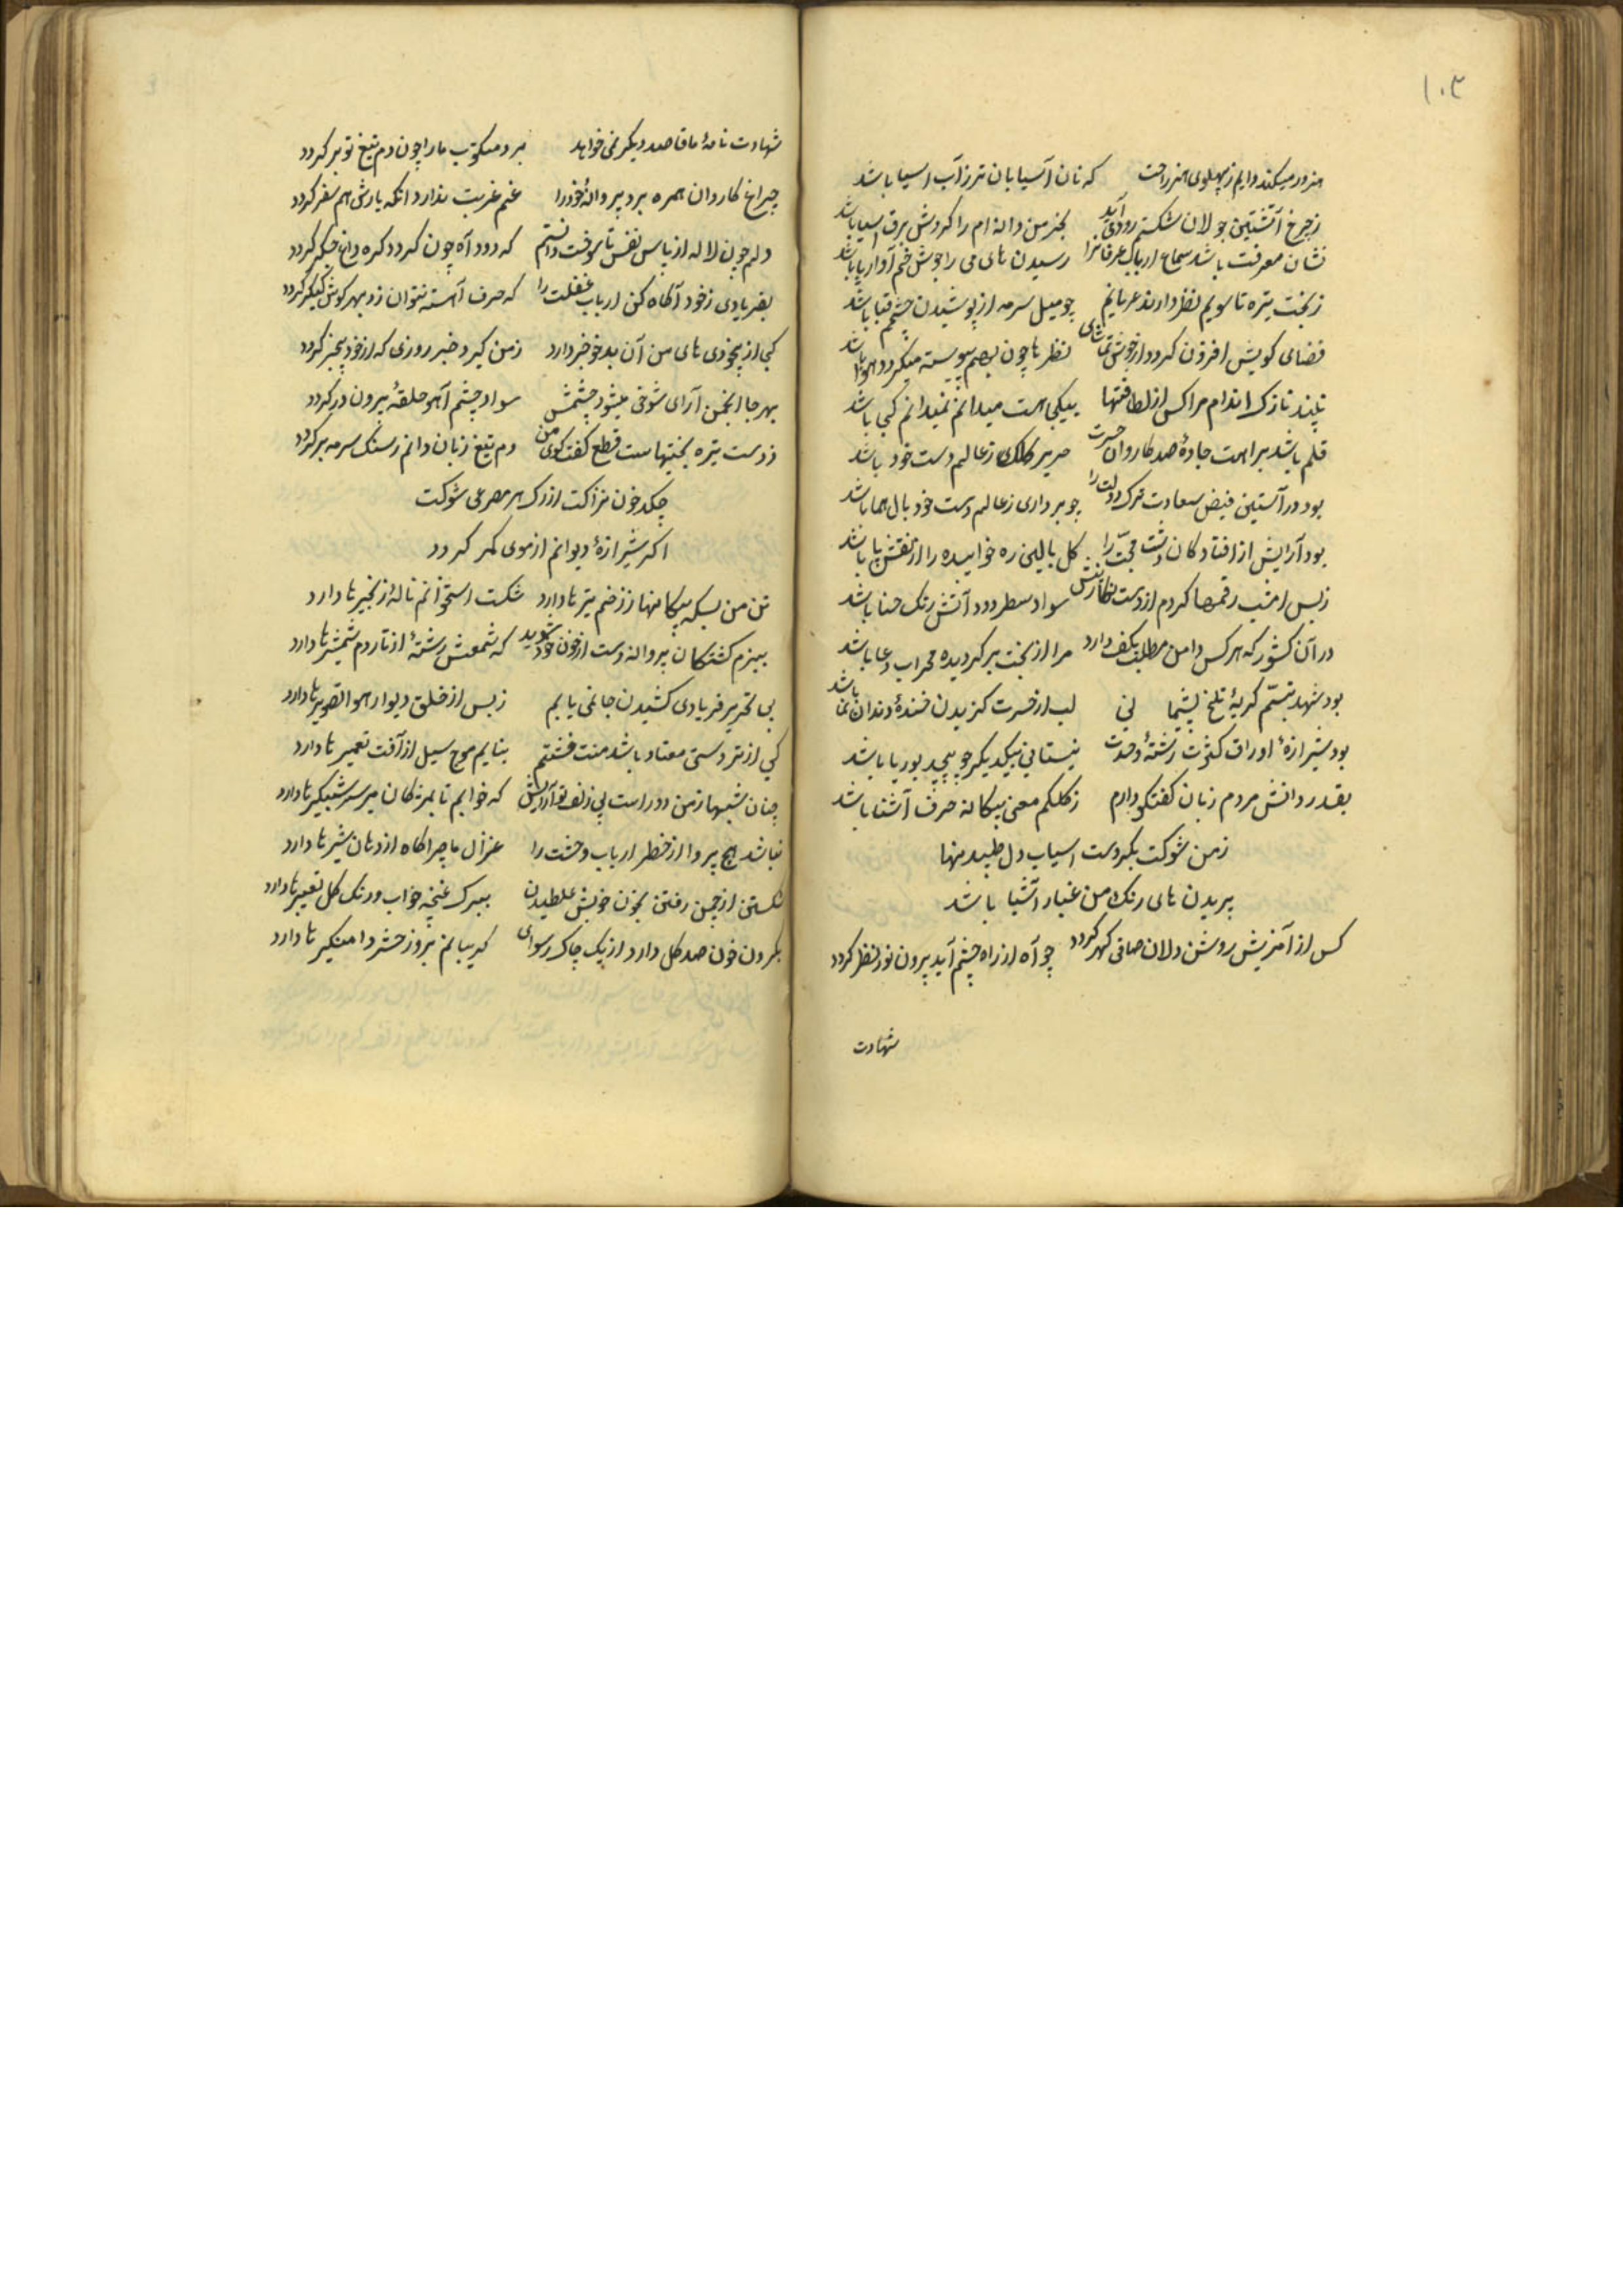 ۱۰۲
هنرور میکند دایم ز پهلوی هنر راحت که نان آسیابان تر ز آب اسیا باشد
ز چرخ آتشین جولان شکستم رو آید بخرمن دانه ام را کردش برق اسیا باشد
نشان معرفت باشد سماع ارباب عرفانرا رسیدن های می را جوش خم آواز پا باشد
ز بخت تیره تا سویم نظر دارند عریانیم چو میل سرمه از پوشیدن چشمم قبا باشد
فضای کویش افزون کردد از جوش تماشای نظرها چون بهم پیوسته میکردد هوا باشد
نازک اندام مرا کس از لطافتها بیکی هست میدانم نمیدانم کجی باشد
قلم باشد براهت جادۀ صد کاروان حسرت صریر کلک ز عالم دست خود باشد
بود در آستین فیض سعادت ترک دولت را چو برداری ز عالم دست خود بال هما باشد
بود آرایش از افتادکان دشت محبّت را کل بالین ره خوابیده را از نقش پا باشد
ز بس امشب رقمها کردم از دست نکارینش سواد سطر دود آتش رنک حنا باشد
در آن کشور که هر کس دامن مطلب بکف دارد مرا از بخت برکردیده محراب دعا باشد
بود شهد تبسّم کریۀ تلخ پشیمانی لب از حسرت کزیدن خندۀ دندان نما باشد
بود شیرازۀ اوراق کثرت رشتۀ وحدت نیستانی بیکدیکر چو پیچد بوریا باشد
بقدر دانش مردم زبان کفتکو دارم ز کلکم معنی بیکانه حرف آشنا باشد
ز من شوکت بکردست اسیاب دل طپیدنها
پریدن های رنک من غبار آسیا باشد
کس از آمیزش روشن دلان صافی کهر کردد چو آه از راه چشم آید برون نور نظر کردد
شهادت
شهادت نامۀ ما قاصد دیکر نمی خواهد برد مکتوب ما را چون دم تیغ تو بر کردد
چراغ کاروان همره برد پروانۀ خود را غم غربت ندارد انکه یارش هم سفر کردد
دلم چون لاله از پاس نفس تا سوخت دانستم که دود آه چون کردد کره داغ جکر کردد
بفریادی ز خود آکاه کن ارباب غفلت را که حرف آهسته نتوان زد بهر کوش که کر کردد
کی از بیخودی های من آن بدخو خبر دارد ز من کیرد خبر روزی که از خود بیخبر کردد
بهر جا انجمن آرای شوخی میشود چشمش سواد چشم آهو حلقۀ بیرون در کردد
ز دست تیره بختیهاست قطع کفت کوی من دم تیغ زبان دانم ز سنک سرمه بر کردد
چکد خون نزاکت از رک هر مصرعی شوکت
اکر شیرازۀ دیوانم از موی کمر کردد
تن من بسکه پیکانها ز زخم تیرها دارد شکست استخوانم نالۀ زنجیرها دارد
ببزم کشتکان پروانه دست از خون خود شوید که شمعش رشتۀ از تار دم شمشیرها دارد
بی تحریر فریادی کشیدن جا نمی یابم ز بس از خلق دیوار هوا تصویرها دارد
کی از تر دستی معتاد باشد منت خشتم بنایم موج سیل از آفت تعمیرها دارد
چنان شبها ز من دور است بی زلف تو آرایش که خوابم تا بمژکان میرسد شبکیرها دارد
نباشد هیچ پروا از خطر ارباب وحشت را غزال ما چراکاه از دهان شیرها دارد
شکستن از چمن رفتن بخون خویش غلطیدن ببرک غنچه خواب و رنک کل تعبیرها دارد
بکردن خون صد کل دارد از یک چاک رسوای کریبانم بروز حشر دامنکیرها دارد